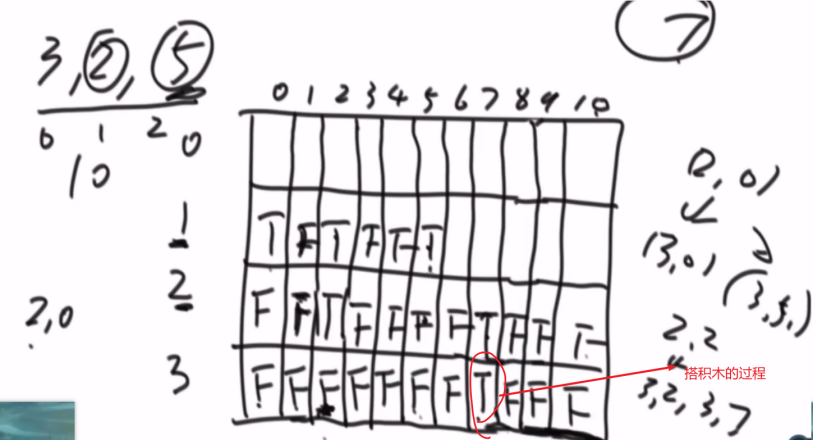 3, 2, 5
0 1 2
10
7
0 1 2 3 4 5 6 7 8 9 10
0
1 T F T F F T
2 F F T F F F F T F F F
3 F F F F F F F T F F F
2,0
(2,0)
(3,0)
(3,5,)
2,2
3,2,3,7
搭积木的过程